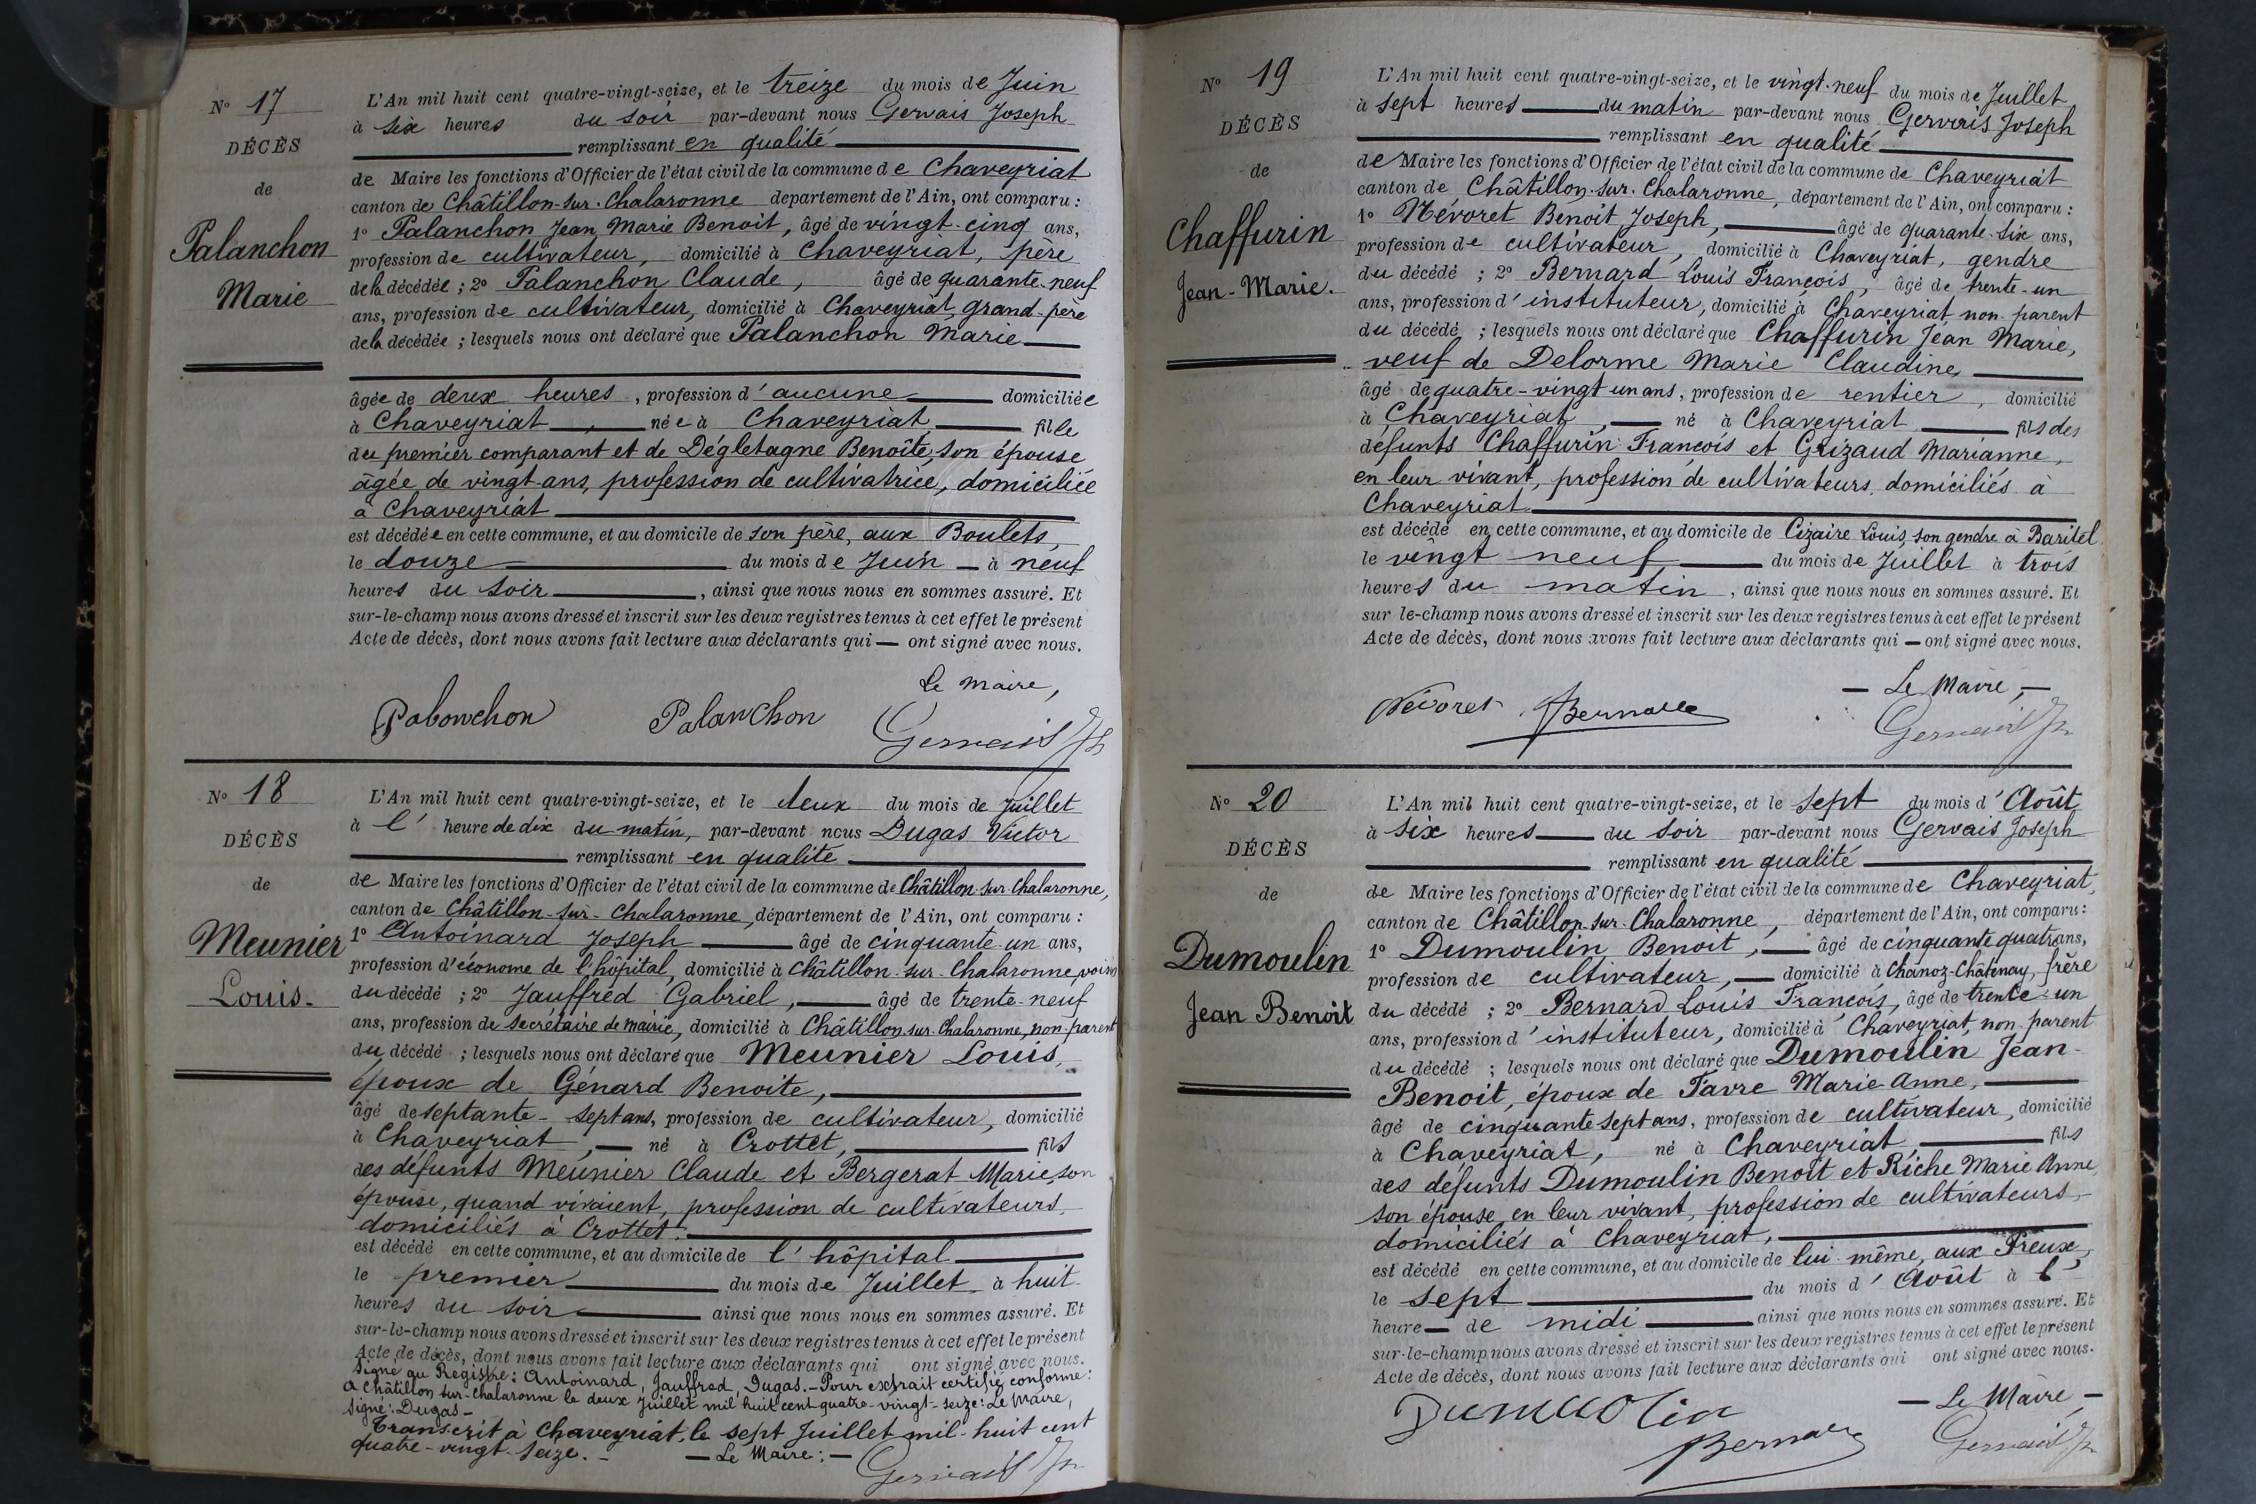 N° 17
DÉCÈS
de
Palanchon
Marie
L'An mil huit cent quatre-vingt-seize, et le treize du mois de Juin
à six heures du soir par-devant nous Gervais Joseph
remplissant en qualité
de Maire les fonctions d'Officier de l'état civil de la commune de Chaveyriat
canton de Châtillon-sur-Chalaronne département de l'Ain, ont comparu :
1° Palanchon Jean Marie Benoit, âgé de vingt-cinq ans,
profession de cultivateur, domicilié à Chaveyriat, père
de la décédée ; 2° Palanchon Claude, âgé de quarante-neuf
ans, profession de cultivateur, domicilié à Chaveyriat, grand-père
de la décédée ; lesquels nous ont déclaré que Palanchon Marie
âgée de deux heures, profession d'aucune domiciliée
à Chaveyriat, née à Chaveyriat fille
du premier comparant et de Dégletagne Benoîte, son épouse
âgée de vingt-ans, profession de cultivatrice, domiciliée
à Chaveyriat
est décédée en cette commune, et au domicile de son père, aux Boulets,
le douze du mois de Juin à neuf
heures du soir, ainsi que nous nous en sommes assuré. Et
sur-le-champ nous avons dressé et inscrit sur les deux registres tenus à cet effet le présent
Acte de décès, dont nous avons fait lecture aux déclarants qui — ont signé avec nous.
Le Maire,
Palanchon Palanchon Gervais Jh
N° 18
DÉCÈS
de
Meunier
Louis.
L'An mil huit cent quatre-vingt-seize, et le deux du mois de Juillet
à l' heure de dix du matin, par-devant nous Dugas Victor
remplissant en qualité
de Maire les fonctions d'Officier de l'état civil de la commune de Châtillon-sur-Chalaronne,
canton de Châtillon-sur-Chalaronne, département de l'Ain, ont comparu :
1° Antoinard Joseph âgé de cinquante-un ans,
profession d'économe de l'hôpital, domicilié à Châtillon-sur-Chalaronne, voisin
du décédé ; 2° Jauffred Gabriel, âgé de trente-neuf
ans, profession de secrétaire de mairie, domicilié à Châtillon-sur-Chalaronne, non-parent
du décédé ; lesquels nous ont déclaré que Meunier Louis,
époux de Génard Benoite,
âgé de septante-sept ans, profession de cultivateur, domicilié
à Chaveyriat, né à Crottet, fils
des défunts Meunier Claude et Bergerat Marie, son
épouse, quand vivaient, profession de cultivateurs,
domiciliés à Crottet.
est décédé en cette commune, et au domicile de l'hôpital
le premier du mois de Juillet à huit
heures du soir ainsi que nous nous en sommes assuré. Et
sur-le-champ nous avons dressé et inscrit sur les deux registres tenus à cet effet le présent
Acte de décès, dont nous avons fait lecture aux déclarants qui ont signé avec nous.
Signé au Registre : Antoinard, Jauffred, Dugas. — Pour extrait certifié conforme :
à Châtillon-sur-Chalaronne le deux Juillet mil huit cent quatre-vingt-seize : Le Maire,
Signé : Dugas —
Transcrit à Chaveyriat, le sept Juillet mil-huit cent
quatre-vingt-seize. — Le Maire : — Gervais Jh
N° 19
DÉCÈS
de
Chaffurin
Jean-Marie.
L'An mil huit cent quatre-vingt-seize, et le vingt-neuf du mois de Juillet
à sept heures du matin par-devant nous Gervais Joseph
remplissant en qualité
de Maire les fonctions d'Officier de l'état civil de la commune de Chaveyriat
canton de Châtillon-sur-Chalaronne, département de l'Ain, ont comparu :
1° Névoret Benoit Joseph, âgé de quarante-six ans,
profession de cultivateur, domicilié à Chaveyriat, gendre
du décédé ; 2° Bernard Louis François, âgé de trente-un
ans, profession d'instituteur, domicilié à Chaveyriat non-parent
du décédé ; lesquels nous ont déclaré que Chaffurin Jean Marie,
veuf de Delorme Marie Claudine,
âgé de quatre-vingt un ans, profession de rentier, domicilié
à Chaveyriat, né à Chaveyriat fils des
défunts Chaffurin François et Grizaud Marianne,
en leur vivant, profession de cultivateurs, domiciliés à
Chaveyriat
est décédé en cette commune, et au domicile de Cizaire Louis, son gendre à Baritel
le vingt neuf du mois de Juillet à trois
heures du matin, ainsi que nous nous en sommes assuré. Et
sur le-champ nous avons dressé et inscrit sur les deux registres tenus à cet effet le présent
Acte de décès, dont nous avons fait lecture aux déclarants qui — ont signé avec nous.
— Le Maire, —
Névoret Bernard Gervais Jh
N° 20
DÉCÈS
de
Dumoulin
Jean Benoit
L'An mil huit cent quatre-vingt-seize, et le sept du mois d'Août
à six heures du soir par-devant nous Gervais Joseph
remplissant en qualité
de Maire les fonctions d'Officier de l'état civil de la commune de Chaveyriat,
canton de Châtillon-sur-Chalaronne, département de l'Ain, ont comparu :
1° Dumoulin Benoit, âgé de cinquante quatre ans,
profession de cultivateur, domicilié à Chanoz-Châtenay, frère
du décédé ; 2° Bernard Louis François, âgé de trente-un
ans, profession d'instituteur, domicilié à Chaveyriat, non-parent
du décédé ; lesquels nous ont déclaré que Dumoulin Jean-
Benoit, époux de Favre Marie-Anne,
âgé de cinquante sept ans, profession de cultivateur, domicilié
à Chaveyriat, né à Chaveyriat, fils
des défunts Dumoulin Benoit et Riche Marie Anne,
son épouse, en leur vivant, profession de cultivateurs,
domiciliés à Chaveyriat,
est décédé en cette commune, et au domicile de lui-même, aux Preux,
le sept du mois d'Août à l'
heure — de midi ainsi que nous nous en sommes assuré. Et
sur-le-champ nous avons dressé et inscrit sur les deux registres tenus à cet effet le présent
Acte de décès, dont nous avons fait lecture aux déclarants qui ont signé avec nous.
— Le Maire, —
Dumoulin Bernard Gervais Jh